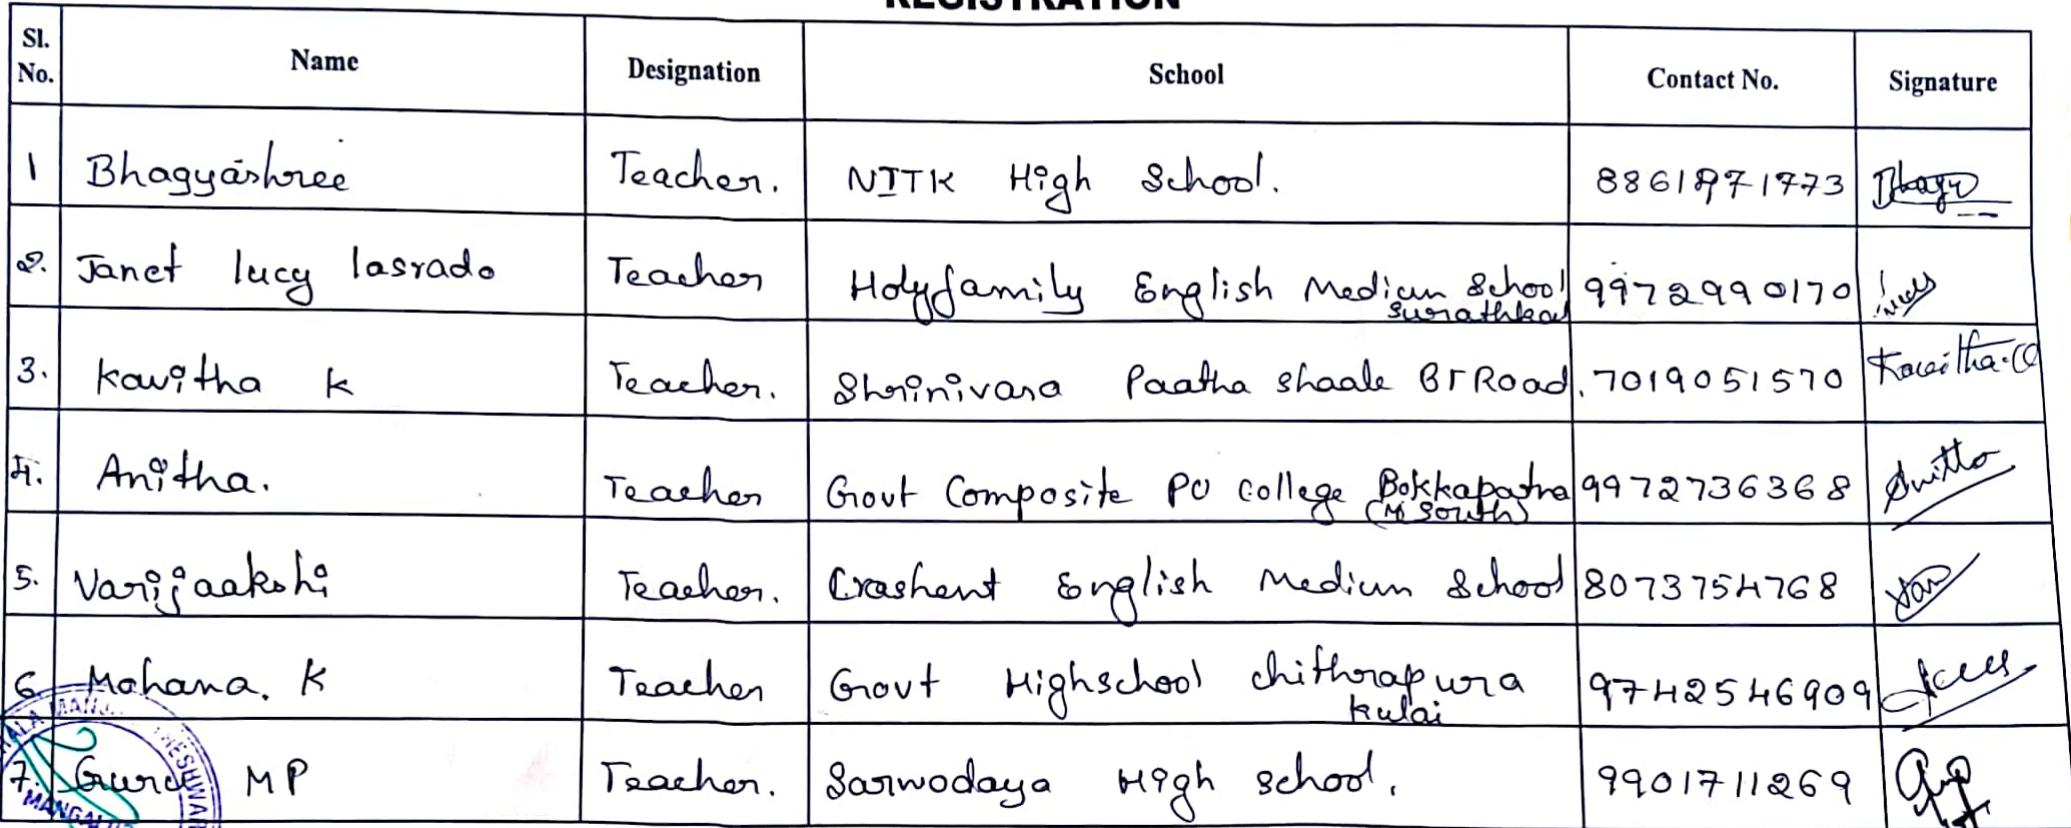 REGISTRATION
Sl. No. Name Designation School Contact No. Signature
1 Bhagyashree Teacher. NITK High School. 8861971773
2. Janet lucy lasrado Teacher Holyfamily English Medium School Surathkal 9972990170
3. Kavitha K Teacher. Shrinivasa Paatha shaale BT Road. 7019051570 Kavitha
4. Anitha. Teacher Govt Composite PU College Bokkapatna (M South) 9972736368
5. Varijaakshi Teacher. Crashent English Medium School 8073754768
6 Mohana. K Teacher Govt Highschool chithrapura Kulai 9742546909
7. Guru MP Teacher. Sarwodaya High school. 9901711269